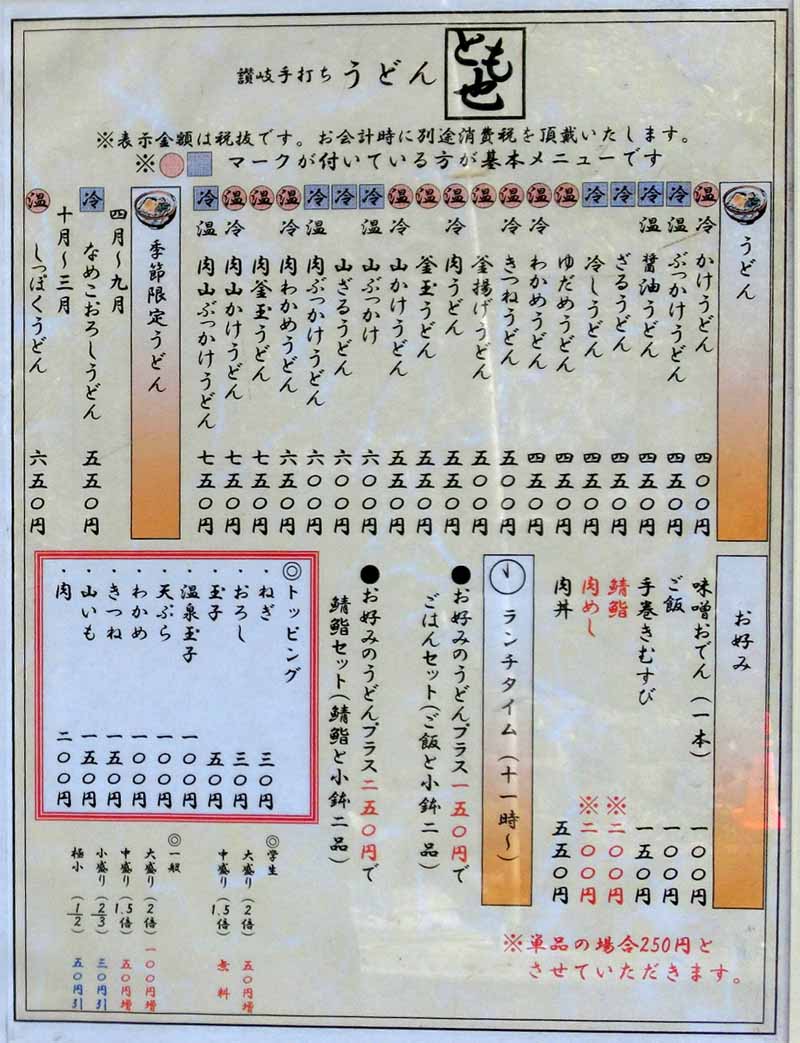 讃岐手打ちうどん ともや也
※表示金額は税抜です。お会計時に別途消費税を頂戴いたします。
※ マークが付いている方が基本メニューです
うどん
温 冷 かけうどん 四〇〇円
冷 温 ぶっかけうどん 四五〇円
冷 温 醤油うどん 四五〇円
冷 ざるうどん 四五〇円
冷 冷しうどん 四五〇円
温 ゆだめうどん 四五〇円
温 冷 わかめうどん 四五〇円
温 冷 きつねうどん 五〇〇円
温 釜揚げうどん 五〇〇円
温 冷 肉うどん 五五〇円
温 釜玉うどん 五五〇円
温 冷 山かけうどん 五五〇円
冷 温 山ぶっかけ 六〇〇円
冷 山ざるうどん 六〇〇円
冷 温 肉ぶっかけうどん 六〇〇円
温 冷 肉わかめうどん 六五〇円
温 肉釜玉うどん 七五〇円
温 冷 肉山かけうどん 七五〇円
冷 温 肉山ぶっかけうどん 七五〇円
季節限定うどん
四月〜九月
冷 なめこおろしうどん 五五〇円
十月〜三月
温 しっぽくうどん 六五〇円
お好み
味噌おでん(一本) 一〇〇円
ご飯 一〇〇円
手巻きむすび 一五〇円
鯖鮨 ※二〇〇円
肉めし ※二〇〇円
肉丼 五五〇円
※単品の場合250円と
させていただきます。
ランチタイム(十一時〜)
●お好みのうどんプラス一五〇円で
ごはんセット(ご飯と小鉢二品)
●お好みのうどんプラス二五〇円で
鯖鮨セット(鯖鮨と小鉢二品)
◎トッピング
・ねぎ 三〇円
・おろし 三〇円
・玉子 五〇円
・温泉玉子 一〇〇円
・天ぷら 一〇〇円
・わかめ 一〇〇円
・きつね 一五〇円
・山いも 一五〇円
・肉 二〇〇円
◎学生
大盛り(2倍) 五〇円増
中盛り(1.5倍) 無料
◎一般
大盛り(2倍) 一〇〇円増
中盛り(1.5倍) 五〇円増
小盛り(2/3) 三〇円引
極小(1/2) 五〇円引